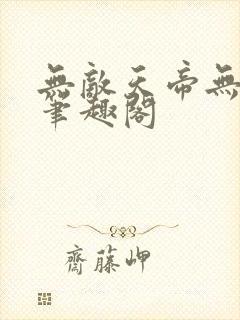 無敵天帝無
筆趣閣
齋藤岬